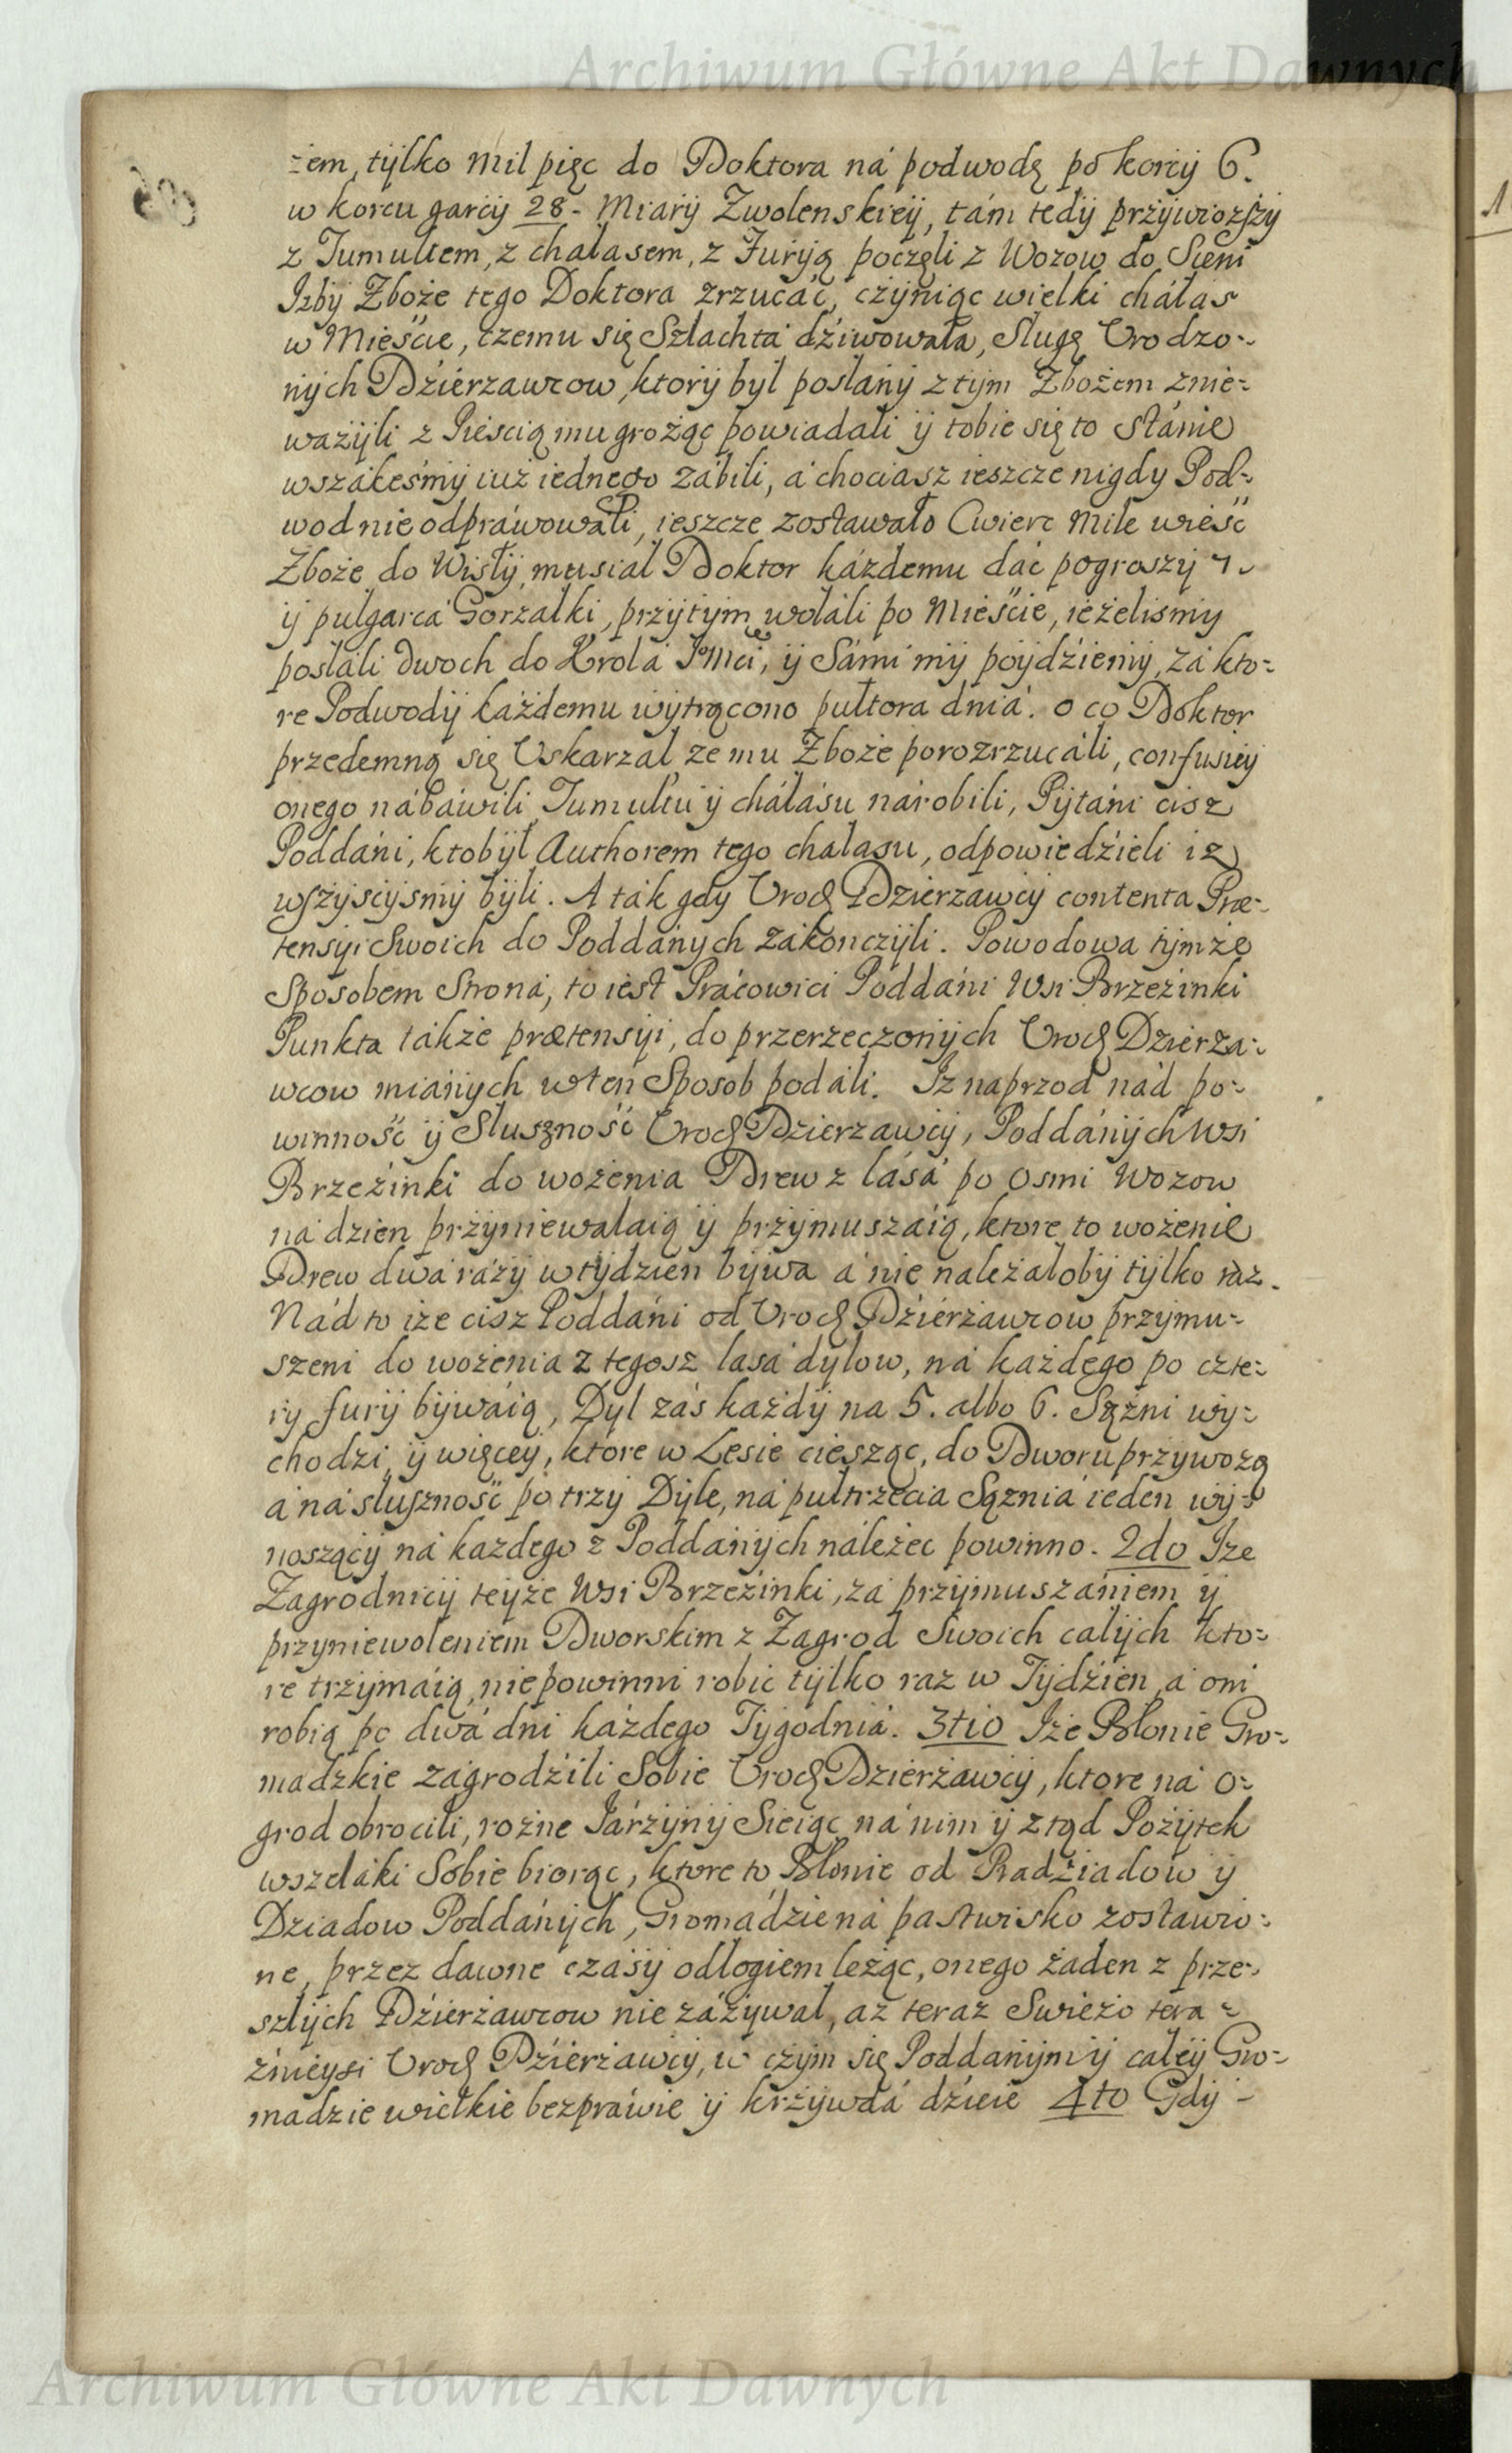 Archiwum Główne Akt Dawnych
żem, tylko mil pięc do Doktora ná podwodę po korcy 6.
w korcu garcy 28 - Miary Zwolenskiey, tám tedy przywiozszy
z Tumultem, z chałasem, z Furyią poczęli z Wozow do Sieni
Izby Zboże tego Doktora zrzucáć, czyniąc wielki cháłas
w Mieście, czemu się Szlachtá dźiwowałá, Sługę Vrodzo-
nych Dźierzawcow, ktory był posłány z tym Zbożem znie-
ważyli z Pieścią mu grożąc powiadali y tobie się to stánie
wszákeśmy iuż iednego zábili, á chociasz ieszcze nigdy Pod-
wod nie odpráwowáli, ieszcze zostawáło Cwierc Mile wieść
Zboże do Wisły, musiał Doktor káżdemu dáć po groszy 7.
y pułgarcá Gorzałki, przytym wołáli po Mieście, ieżeliśmy
posłáli dwoch do Krolá JMći, y Sámi my poydźiemy, zá kto-
re Podwody każdemu wytrącono pułtora dniá. o co Doktor
przedemną się Vskarzał ze mu Zboże porozrzucáli, confusiey
onego nábáwili, Tumultu y cháłásu nárobili, Pytáni cisz
Poddáni, kto był Authorem tego chałasu, odpowiedźieli iz
wszyscysmy byli. A ták gdy Vrod Dzierzawcy contenta Præ-
tensyi Swoich do Poddánych zákonczyli. Powodowa tymże
Sposobem Stroná, to iest Prácowici Poddáni Wsi Brzeżinki
Punkta tákże prætensyi, do przerzeczonych Vrod Dzierza-
wcow miánych w ten Sposob podáli. Iz naprzod nád po-
winność y Słuszność Vrod Dzierzawcy, Poddánych Wsi
Brzeżinki do wożenia Drew z lásá po osmi Wozow
ná dzien przyniewalaią y przymuszáią, ktore to wożenie
Drew dwá rázy w tydzien bywa á nie należałoby tylko raz.
Nád to iże cisz Poddáni od Vrod Dźierżawcow przymu-
szeni do wożenia z tegosz lasá dylow, ná każdego po czte-
ry fury bywáią, Dyl záś każdy na 5. albo 6. Sążni wy-
chodzi, y więcey, ktore w Lesie ciesząc, do Dworu przywożą
á ná słuszność po trzy Dyle, ná pułtrzecia Sążnia ieden wy-
noszący ná każdego z Poddánych náleżec powinno. 2do Iże
Zagrodnicy teyże Wsi Brzeżinki, zá przymuszániem y
przyniewoleniem Dworskim z Zagrod Swoich całych kto-
re trzymáią, nie powinni robic tylko raz w Tydzien, á oni
robią po dwá dni każdego Tygodniá. 3tio Iże Błonie Gro-
madzkie zágrodźili Sobie Vrod Dzierżawcy, ktore ná o-
grod obrocili, rożne Járzyny Sieiąc ná nim y ztąd Pożytek
wszeláki Sobie biorąc, ktore to Błonie od Pradźiadow y
Dziadow Poddánych, Gromádzie ná pastwisko zostawio-
ne, przez dawne czásy odłogiem leżąc, onego żaden z prze-
szłych Dźierżawcow nie záżywał, aż teraz Swieżo tera-
źnieysi Vrod Dźierżawcy, w czym się Poddánym y całey Gro-
madzie wielkie bezpráwie y krzywdá dźieie 4to Gdy -
Archiwum Główne Akt Dawnych